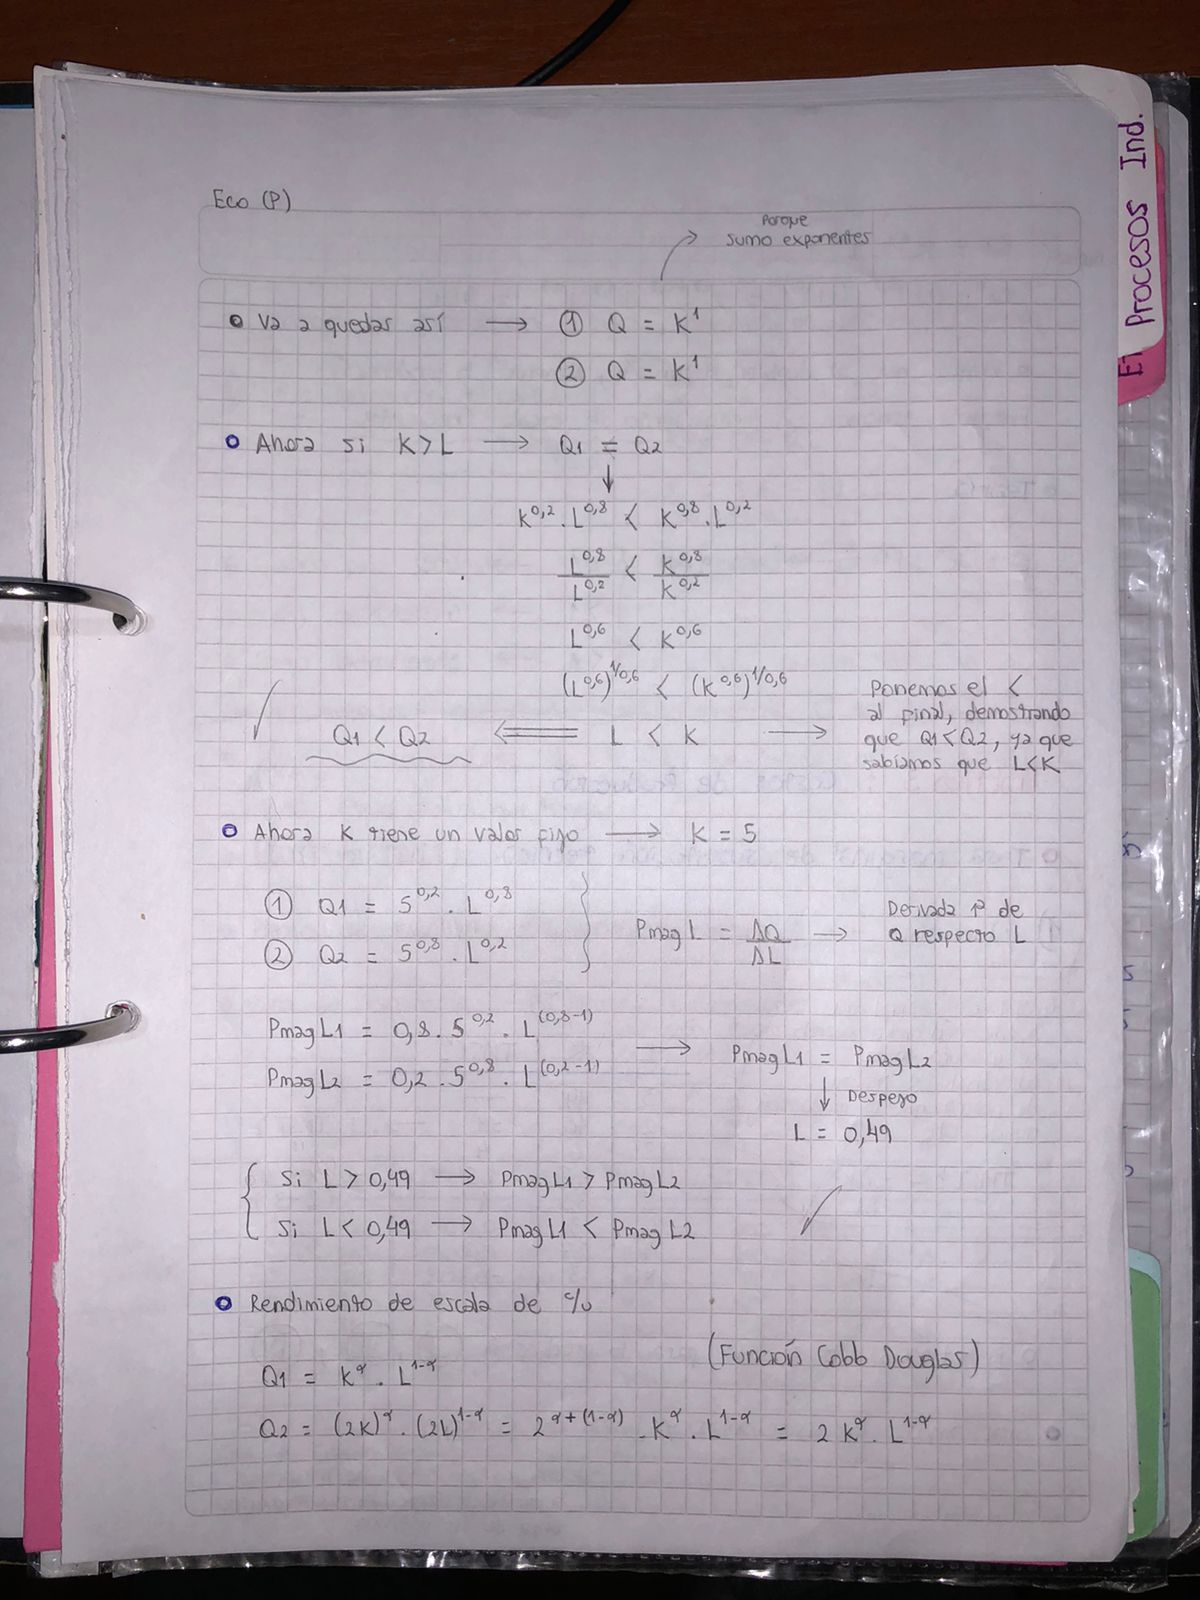 Eco (P)
Porque
sumo exponentes
Va a quedar así → ① Q = K¹
② Q = K¹
Ahora si K > L → Q1 = Q2
↓
K^0,2 . L^0,8 < K^0,8 . L^0,2
L^0,8 / L^0,2 < K^0,8 / K^0,2
L^0,6 < K^0,6
(L^0,6)^1/0,6 < (K^0,6)^1/0,6
Q1 < Q2 ⇐ L < K →
Ponemos el <
al final, demostrando
que Q1<Q2, ya que
sabíamos que L<K
Ahora K tiene un valor fijo → K = 5
① Q1 = 5^0,2 . L^0,8
② Q2 = 5^0,8 . L^0,2
Pmag L = ΔQ / ΔL →
Derivada 1º de
Q respecto L
Pmag L1 = 0,8 . 5^0,2 . L^(0,8-1)
Pmag L2 = 0,2 . 5^0,8 . L^(0,2-1)
→ Pmag L1 = Pmag L2
↓ Despejo
L = 0,49
Si L > 0,49 → Pmag L1 > Pmag L2
Si L < 0,49 → Pmag L1 < Pmag L2
Rendimiento de escala de %
(Función Cobb Douglas)
Q1 = K^α . L^1-α
Q2 = (2K)^α . (2L)^1-α = 2^α+(1-α) . K^α . L^1-α = 2 K^α . L^1-α
Procesos Ind.